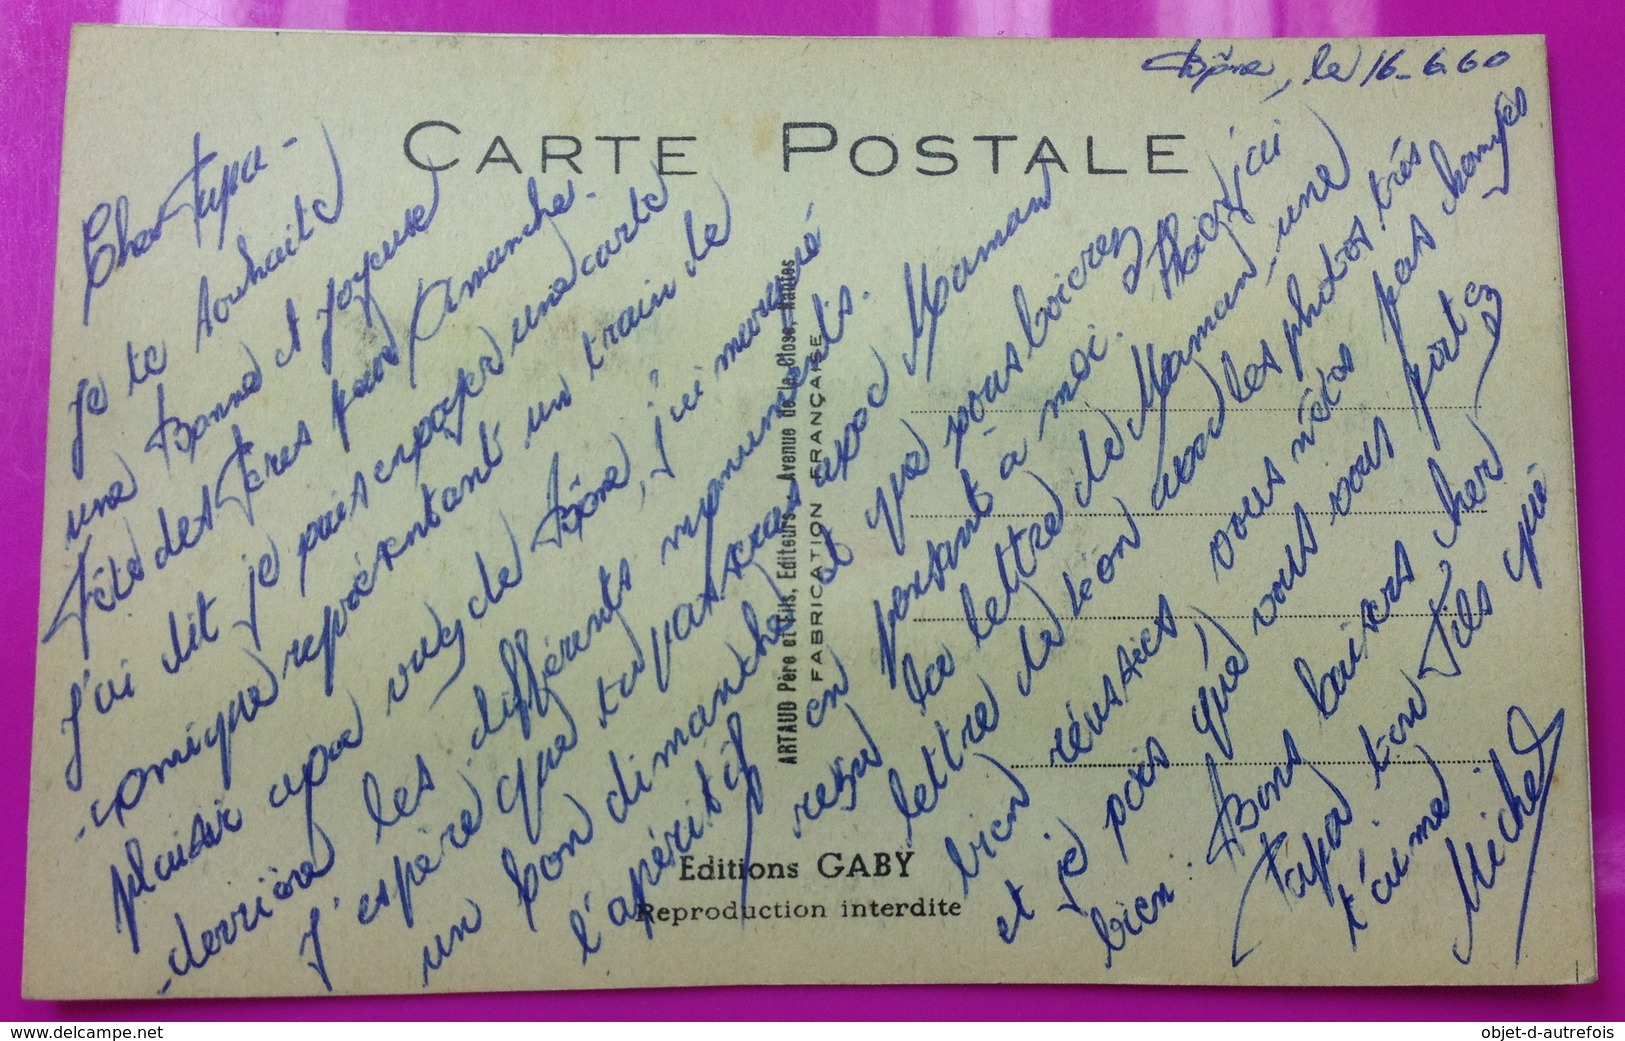 Bône, le 16-6.60
CARTE POSTALE
Cher Papa -
Je te souhaite
une Bonne et Joyeuse
Fête des Pères pour Dimanche.
J'ai dit je puis envoyer une carte
comique représentant un train de
plaisir avec vue de Bône, j'ai marqué
derrière les différents monuments.
J'espère que tu passeras avec Maman
un bon dimanche et que vous boirez
l'apéritif en pensant à moi. Moi j'ai
reçu la lettre de Maman, une
lettre de Léon avec les photos très
bien réussies vous n'êtes pas changés
et je vois que vous vous portez
bien. Bons baisers cher
Papa ton Fils qui
t'aime
Michel
ARTAUD Père et Fils, Editeurs, Avenue de la Close, Nantes
FABRICATION FRANÇAISE
Editions GABY
Reproduction interdite
www.delcampe.net
objet-d-autrefois